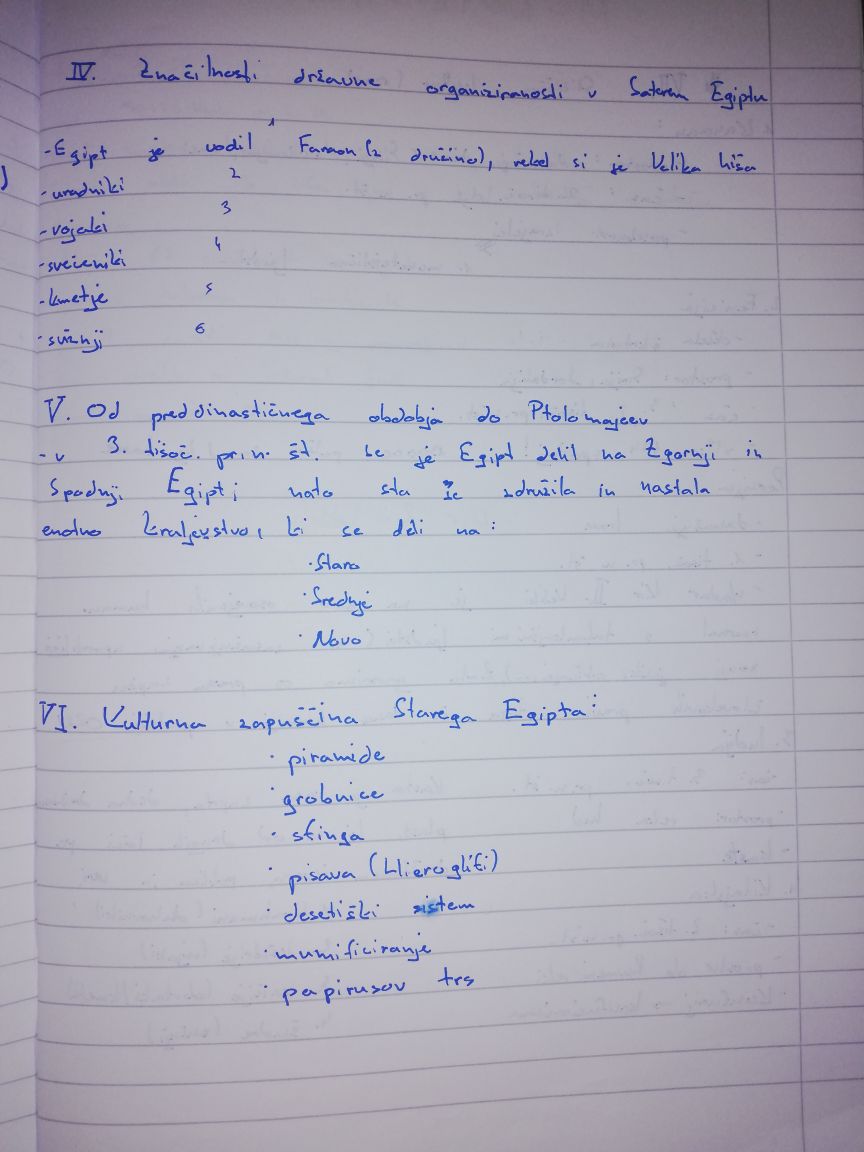 IV. Značilnosti državne organiziranosti v Starem Egiptu
-Egipt je vodil 1 Faraon (z družino), rekel si je Velika hiša
-uradniki 2
-vojaki 3
-svečeniki 4
-kmetje 5
-sužnji 6
V. Od preddinastičnega obdobja do Ptolomajcev
-v 3. tisoč. pr.n. št. se je Egipt delil na Zgornji in
Spodnji Egipt; nato sta se združila in nastala
enotno kraljevstvo, ki se deli na:
·Staro
·Srednje
·Novo
VI. Kulturna zapuščina Starega Egipta:
·piramide
·grobnice
·sfinga
·pisava (Hieroglifi)
·desetiški sistem
·mumificiranje
·papirusov trs